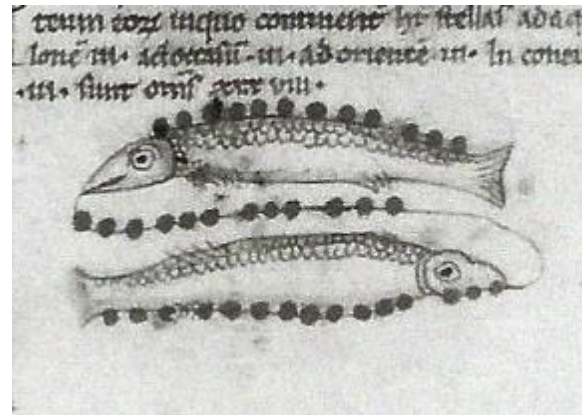 teum eorum inquo continent ht stellas ad aq
lone · iii · ad occasū · iii · ab oriente · iii · In
· iii · sunt oms xxx viii ·